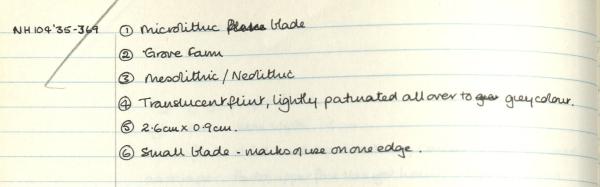 NH104'35-369 ① Microlithic blade
② Grove Farm
③ Mesolithic / Neolithic
④ Translucent flint, lightly patinated all over to grey colour.
⑤ 2.6cm x 0.9cm.
⑥ Small blade - marks of use on one edge.